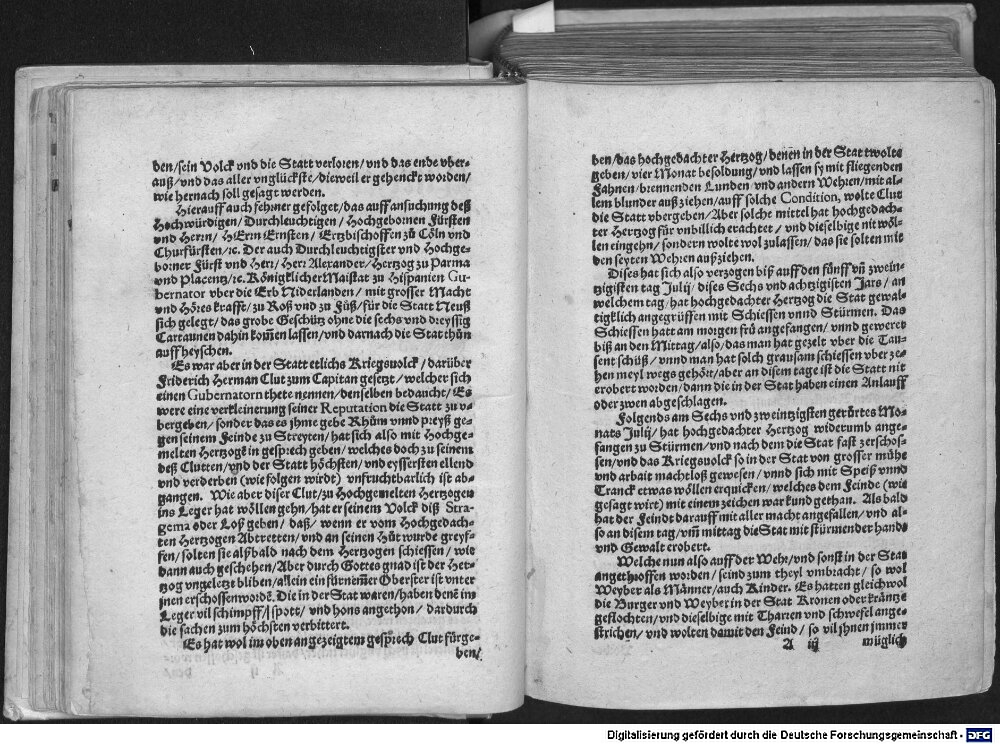 ben/sein Volck vnd die Statt verloren/vnd das ende vber-
auß/vnd das aller vnglückste/dieweil er gehenckt worden/
wie hernach soll gesagt werden.
Hierauff auch fehrner gefolget/das auff ansuchung deß
Hochwürdigen/Durchleuchtigen/Hochgebornen Fürsten
vnd Herrn/HErrn Ernsten/Ertzbischoffen zů Cöln vnd
Churfürsten/ꝛc. Der auch Durchleuchtigster vnd Hochge-
borner Fürst vnd Herr/Herr Alexander/Hertzog zu Parma
vnd Placentz/ꝛc. Königklicher Maistat zu Hispanien Gu-
bernator vber die Erb Niderlanden/mit grosser Macht
vnd Höres krafft/zu Roß vnd zu Fůß/für die Statt Neuß
sich gelegt/das grobe Geschütz ohne die sechs vnd dreyssig
Cartaunen dahin kom̄en lassen/vnd darnach die Stat thůn
auff heyschen.
Es war aber in der Statt etlichs Kriegsuolck/darüber
Friderich Herman Clut zum Capitan gesetzt/welcher sich
einen Gubernatorn thete nennen/denselben bedaucht/Es
were eine verkleinerung seiner Reputation die Statt zu v-
bergeben/sonder das es jhme gebe Rhům vnnd preyß ge-
gen seinem Feinde zu Streyten/hat sich also mit Hochge-
melten Hertzogē in gesprech geben/welches doch zu seinem
deß Clutten/vnd der Statt höchsten/vnd eyssersten ellend
vnd verderben (wie folgen wirdt) vnfruchtbarlich ist ab-
gangen. Wie aber diser Clut/zu Hochgemelten Hertzogen
ins Leger hat wöllen gehn/hat er seinem Volck diß Stra-
gema oder Loß geben/daß/wenn er vom Hochgedach-
ten Hertzogen Abtretten/vnd an seinen Hůt wurde greyf-
fen/solten sie alßbald nach dem Hertzogen schiessen/wie
dann auch geschehen/Aber durch Gottes gnad ist der Her-
tzog vngeletzt bliben/allein ein fürnem̄er Oberster ist vnter
jnen erschossen wordē. Die in der Stat waren/haben denē im
Leger vil schimpff/spott/vnd hons angethon/dardurch
die sachen zum höchsten verbittert.
Es hat wol im oben angezeigtem gesprech Clut fürge-
ben/
ben/das hochgedachter Hertzog/denen in der Stat wolte
geben/vier Monat besoldung/vnd lassen sy mit fliegenden
Fahnen/brennenden Lunden/vnd andern Wehren/mit al-
lem blunder auß ziehen/auff solche Condition, wolte Clut
die Statt vbergeben/Aber solche mittel hat hochgedach-
ter Hertzog für vnbillich erachtet/vnd dieselbige nit wöl-
len eingehn/sondern wolte wol zulassen/das sie solten mit
den seyten Wehren außziehen.
Dises hat sich also verzogen biß auff den fünff vn̄ zwein-
tzigisten tag Julij/dises Sechs vnd achtzigisten Jars/an
welchem tag/hat hochgedachter Hertzog die Stat gewal-
tigklich angegrüffen mit Schiessen vnnd Stürmen. Das
Schiessen hatt am morgen frů angefangen/vnnd geweret
biß an den Mittag/also/das man hat gezelt vber die Tau-
sent schüß/vnnd man hat solch grausam schiessen vber ze-
hen meyl wegs gehört/aber an disem tage ist die Statt nit
erobert worden/dann die in der Stat haben einen Anlauff
oder zwen abgeschlagen.
Folgends am Sechs vnd zweintzigsten gerürtes Mo-
nats Julij/hat hochgedachter Hertzog widerumb ange-
fangen zu Stürmen/vnd nach dem die Stat fast zerschos-
sen/vnd das Kriegsuolck so in der Stat von grosser mühe
vnd arbait machtloß gewesen/vnnd sich mit Speiß vnnd
Tranck etwas wöllen erquicken/welches dem Feinde (wie
gesagt wirt) mit einem zeichen war kund gethan. Als bald
hat der Feindt darauff mit aller macht angefallen/vnd al-
so an disem tag/vm̄ mittag die Stat mit stürmender hande
vnd Gewalt erobert.
Welche nun also auff der Wehr/vnd sonst in der Stat
angethroffen worden/seind zum theyl vmbracht/so wol
Weyber als Männer/auch Kinder. Es hatten gleichwol
die Burger vnd Weyber in der Stat Kronen oder kräntze
geflochten/vnd dieselbige mit Tharren vnd schwefel ange-
strichen/vnd wolten damit den Feind/so vil jhnen jmmer
A iij müglich
Digitalisierung gefördert durch die Deutsche Forschungsgemeinschaft - DFG